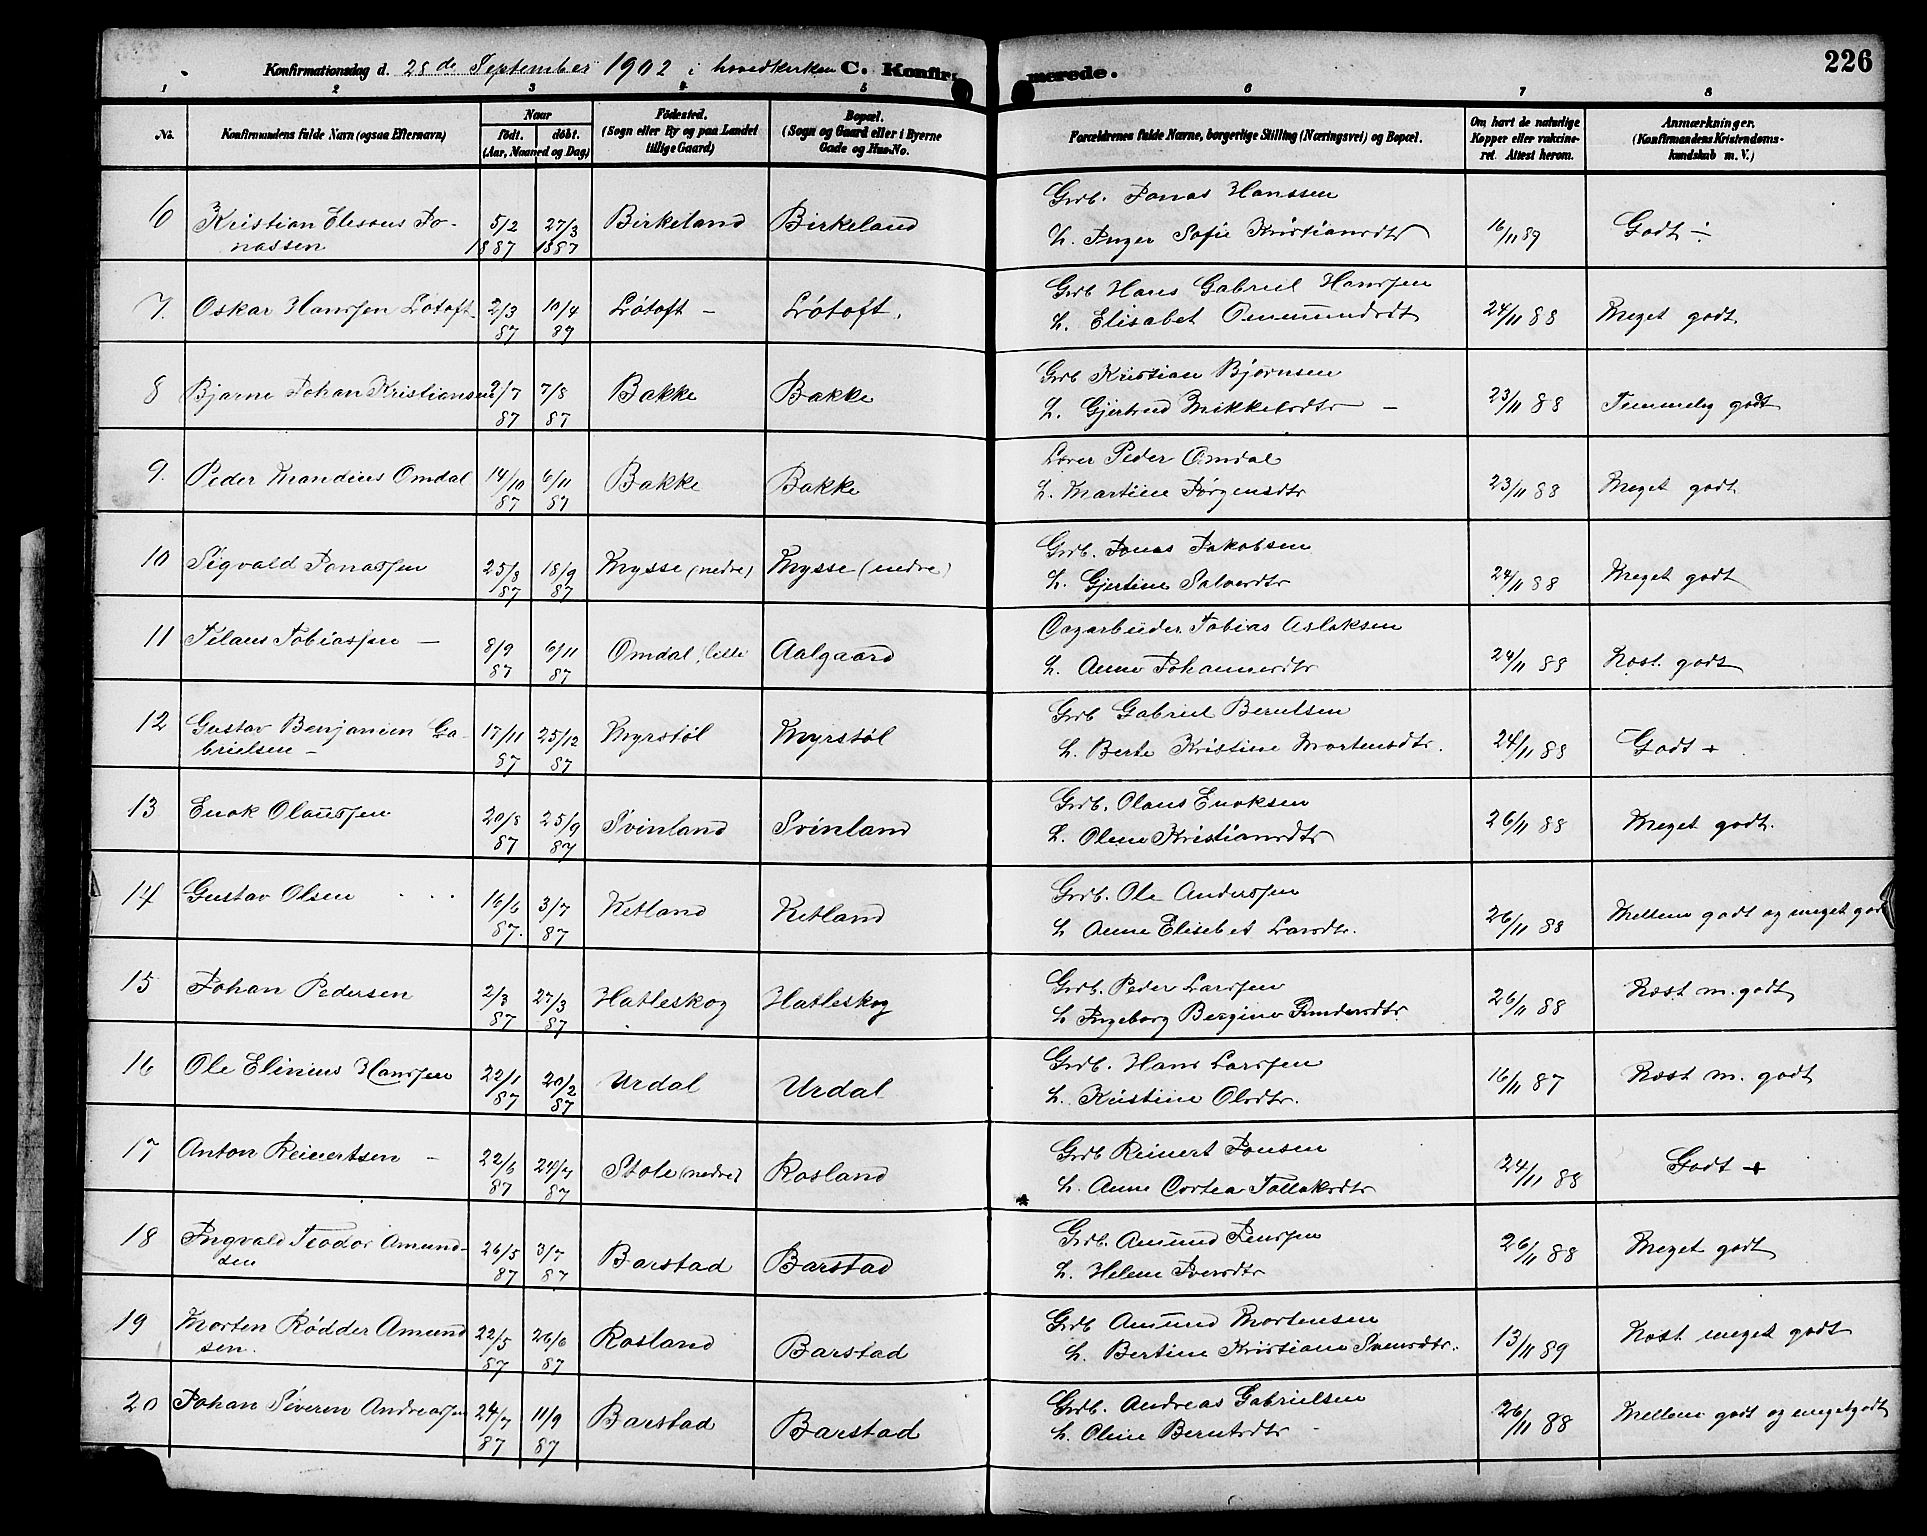 Konfirmationsdag d. 28de September 1902 i hovedkirken C. Konfirmerede. 226
1 2 3 4 5 6 7 8
No. Konfirmandens fulde Navn (ogsaa Efternavn) Naar født. døbt. (Aar, Maaned og Dag) Fødested. (Sogn eller By og paa Landet tillige Gaard) Bopæl. (Sogn og Gaard eller i Byerne Gade og Hus-No. Forældrenes fulde Navne, borgerlige Stilling (Næringsvei) og Bopæl. Om havt de naturlige Kopper eller vakcineret. Attest herom. Anmærkninger. (Konfirmandens Kristendomskundskab m. V.)
6 Kristian Eleseus Jonassen 5/2 1887 27/3 1887 Birkeland Birkeland Grb. Jonas Hanssen H. Inger Sofie Kristiansdtr 16/11 89 Godt ÷
7. Oskar Hanssen Løtoft 2/3 87 10/4 87 Løtoft – Løtoft. Grb Hans Gabriel Hanssen H. Elisabet Ommundsdt 24/11 88 Meget godt
8 Bjarne Johan Kristiansen 2/7 87 7/8 87 Bakke Bakke Grb Kristian Bjørnsen H. Gjertrud Mikkelsdtr – 23/11 88 Temmelig godt
9. Peder Mandius Omdal 14/10 87 6/11 87 Bakke Bakke Lærer Peder Omdal H. Martine Jørgensdtr 23/11 88 Meget godt
10 Sigvald Jonassen 25/8 87 18/9 87 Mysse (nedre) Mysse (nedre) Grb. Jonas Jakobsen H. Gjertine Salvesdtr 24/11 88 Meget godt
11 Tilaus Tobiassen – 8/9 87 6/11 87 Omdal, lille Aalgaard Dagarbeider Tobias Aslaksen H. Anne Johannesdtr 24/11 88 Næst. godt
12 Gustav Benjamin Gabrielsen – 17/11 87 25/12 87 Myrstøl Myrstøl Grb Gabriel Berntsen H. Berte Kristine Mortensdtr. 24/11 88 Godt +
13 Enok Olaussen 20/8 87 25/9 87 Svinland Svinland Grb. Olaus Enoksen H. Oline Kristiansdtr 26/11 88 Meget godt.
14 Gustav Olsen 16/6 87. 3/7 87 Ketland Ketland Grb. Ole Anderssen H Anne Elisabet Larsdtr. 26/11 88 Mellem godt og meget godt
15 Johan Pedersen 2/3 87 27/3 87 Hatleskog Hatleskog Grb. Peder Larssen H Ingeborg Bergine Gundersdtr 26/11 88 Næst m. godt
16 Ole Elinius Hanssen 22/1 87 20/2 87 Urdal Urdal Grb. Hans Larssen H. Kristine Olsdtr. 16/11 87 Næst m. godt
17 Anton Reinertsen – 22/6 87 24/7 87 Stole (nedre) Rosland Grb Reinert Jonsen H. Anne Cortea Tollaksdtr 24/11 88 Godt +
18 Ingvald Teodor Amundsen 26/5 87 3/7 87 Barstad Barstad Grb. Amund Jenssen H. Helene Iversdtr 26/11 88 Meget godt
19 Morten Rødder Amundsen. 22/5 87 26/6 87 Rosland Barstad Grb Amund Mortensen H. Bertine Kristiane Svensdtr. 13/11 89 Næst meget godt
20 Johan Severin Andreassen 24/7 87 11/9 87 Barstad Barstad Grb. Andreas Gabrielsen H. Oline Berntsdtr 26/11 88 Mellem godt og meget godt